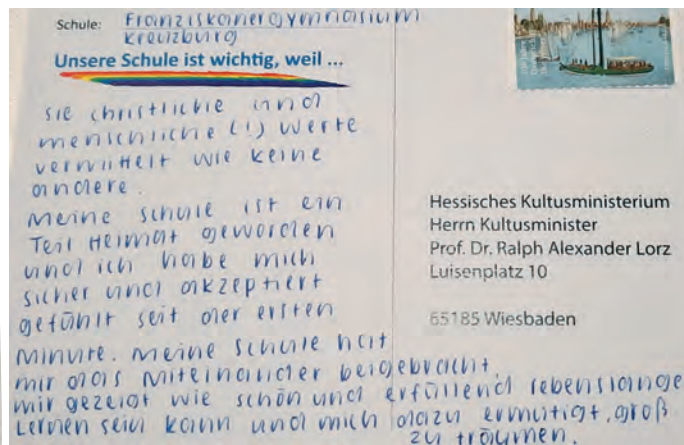 Schule: Franziskanergymnasium
Kreuzburg
Unsere Schule ist wichtig, weil ...
sie christliche und
menschliche (!) Werte
vermittelt wie keine
andere.
Meine Schule ist ein
Teil Heimat geworden
und ich habe mich
sicher und akzeptiert
gefühlt seit der ersten
Minute. Meine Schule hat
mir das Miteinander beigebracht,
mir gezeigt wie schön und erfüllend lebenslange
Lernen sein kann und mich dazu ermutigt, groß
zu träumen.
Hessisches Kultusministerium
Herrn Kultusminister
Prof. Dr. Ralph Alexander Lorz
Luisenplatz 10
65185 Wiesbaden